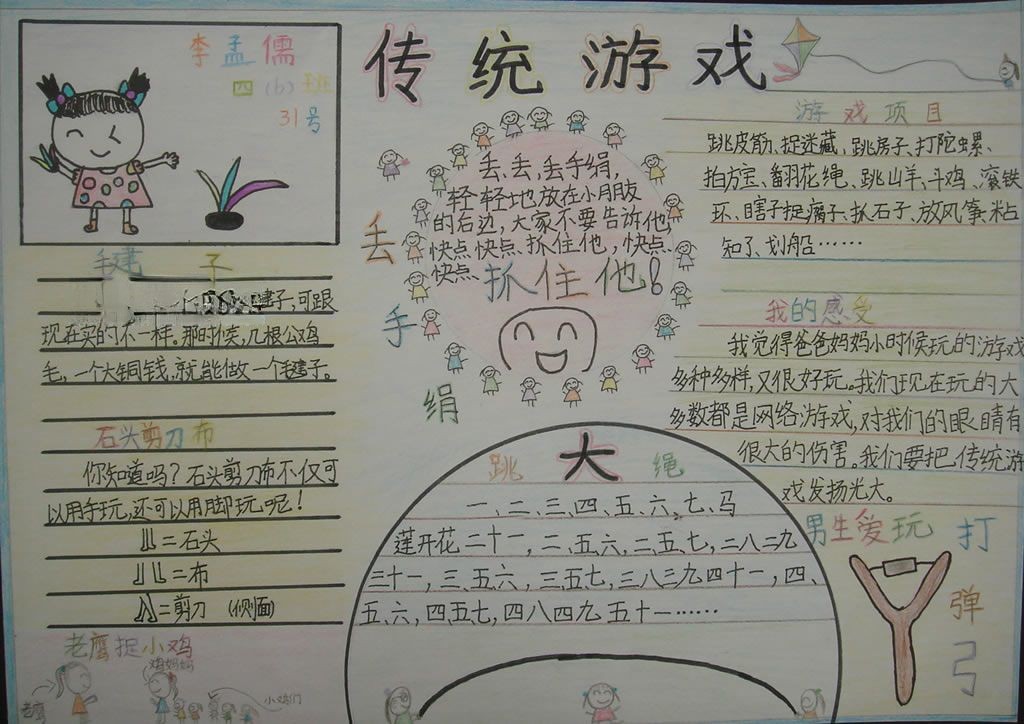 李孟儒
四(6)班
31号
传统游戏
毽子
毽子,可跟
现在买的不一样。那时候,几根公鸡
毛,一个大铜钱,就能做一个毽子。
石头剪刀布
你知道吗?石头剪刀布不仅可
以用手玩,还可以用脚玩呢!
=石头
=布
=剪刀 (侧面)
老鹰捉小鸡
鸡妈妈
老鹰
小鸡们
丢手绢
丢,丢,丢手绢,
轻轻地放在小朋友
的右边,大家不要告诉他,
快点快点、抓住他,快点、
快点、抓住他!
跳大绳
一、二、三、四、五、六、七、马
莲开花二十一,二、五六,二五七,二八二九
三十一,三、五六,三五七,三八三九四十一,四、
五、六,四五七,四八四九五十一……
游戏项目
跳皮筋、捉迷藏、跳房子、打陀螺、
拍方宝、翻花绳、跳山羊、斗鸡、滚铁
环、瞎子捉瘸子、抓石子、放风筝、粘
知了、划船……
我的感受
我觉得爸爸妈妈小时候玩的游戏
多种多样,又很好玩。我们现在玩的大
多数都是网络游戏,对我们的眼睛有
很大的伤害。我们要把传统游
戏发扬光大。
男生爱玩打弹弓